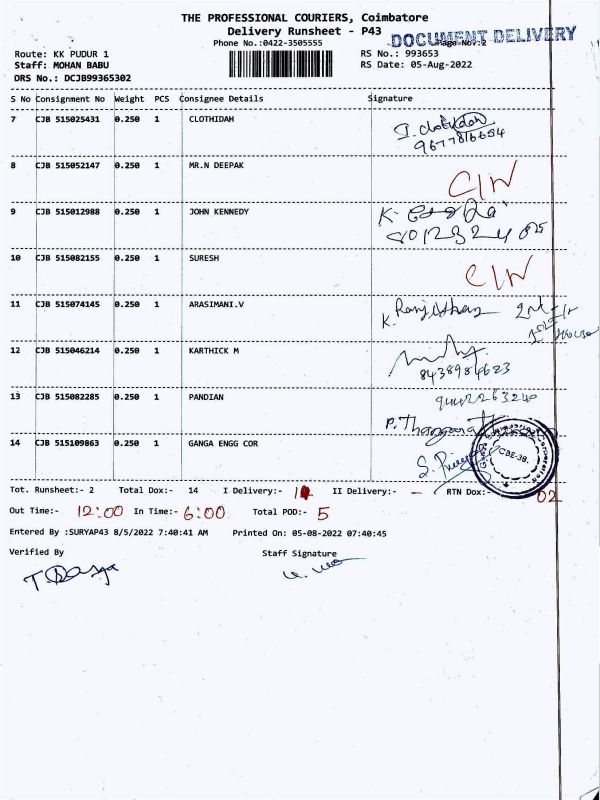 THE PROFESSIONAL COURIERS, Coimbatore
Delivery Runsheet - P43
Phone No.:0422-3505555
DOCUMENT DELIVERY
Page No.:2
Route: KK PUDUR 1
RS No.: 993653
Staff: MOHAN BABU
RS Date: 05-Aug-2022
DRS No.: DCJB99365302
S No Consignment No Weight PCS Consignee Details Signature
7 CJB 515025431 0.250 1 CLOTHIDAH
9677816654
8 CJB 515052147 0.250 1 MR.N DEEPAK C/N
9 CJB 515012988 0.250 1 JOHN KENNEDY K.
10 CJB 515082155 0.250 1 SURESH C/N
11 CJB 515074145 0.250 1 ARASIMANI.V K.
House
12 CJB 515046214 0.250 1 KARTHICK M
8438984623
13 CJB 515082285 0.250 1 PANDIAN
P.
14 CJB 515109863 0.250 1 GANGA ENGG COR S.
CBE-38.
Tot. Runsheet:- 2 Total Dox:- 14 I Delivery:- II Delivery:- - RTN Dox:- 02
Out Time:- 12:00 In Time:- 6:00 Total POD:- 5
Entered By :SURYAP43 8/5/2022 7:40:41 AM Printed On: 05-08-2022 07:40:45
Verified By Staff Signature